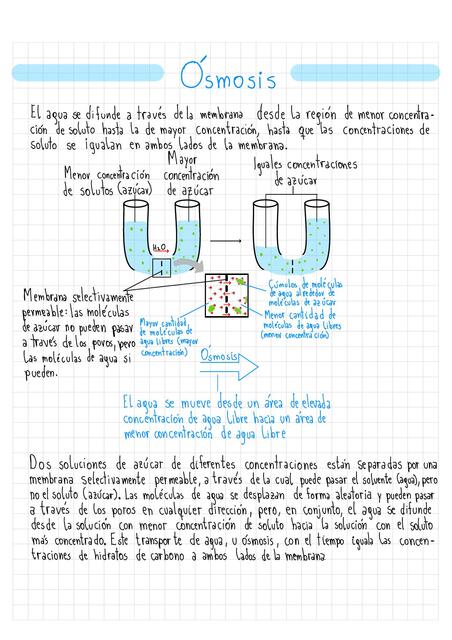 Ósmosis
El agua se difunde a través de la membrana desde la región de menor concentra-
ción de soluto hasta la de mayor concentración, hasta que las concentraciones de
soluto se igualan en ambos lados de la membrana.
Menor concentración
de solutos (azúcar)
Mayor
concentración
de azúcar
Iguales concentraciones
de azúcar
H₂O
Membrana selectivamente
permeable: las moléculas
de azúcar no pueden pasar
a través de los poros, pero
las moléculas de agua sí
pueden.
Mayor cantidad
de moléculas de
agua libres (mayor
concentración)
Cúmulos de moléculas
de agua alrededor de
moléculas de azúcar
Menor cantidad de
moléculas de agua libres
(menor concentración)
Ósmosis
El agua se mueve desde un área de elevada
concentración de agua libre hacia un área de
menor concentración de agua libre
Dos soluciones de azúcar de diferentes concentraciones están separadas por una
membrana selectivamente permeable, a través de la cual puede pasar el solvente (agua), pero
no el soluto (azúcar). Las moléculas de agua se desplazan de forma aleatoria y pueden pasar
a través de los poros en cualquier dirección, pero, en conjunto, el agua se difunde
desde la solución con menor concentración de soluto hacia la solución con el soluto
más concentrado. Este transporte de agua, u ósmosis, con el tiempo iguala las concen-
traciones de hidratos de carbono a ambos lados de la membrana